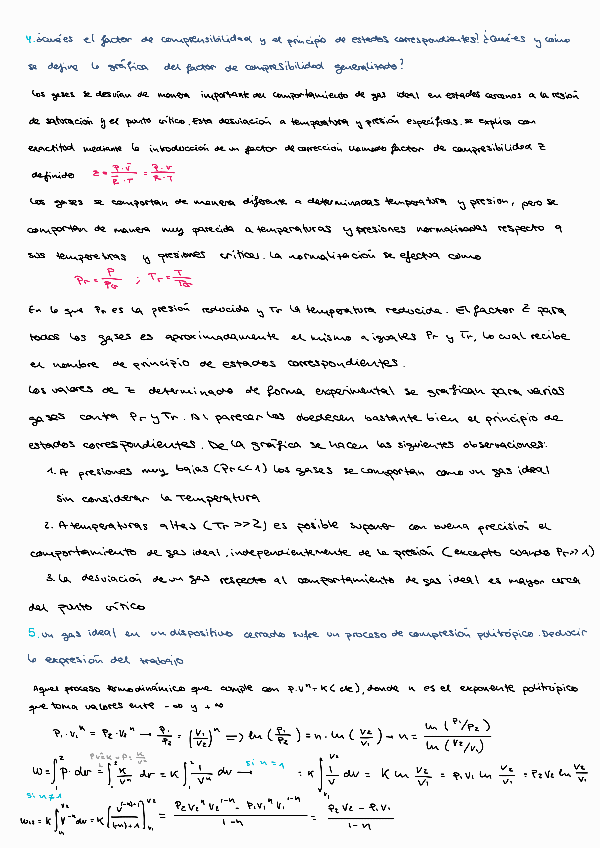 4. ¿Cuál es el factor de comprensibilidad y el principio de estados correspondientes? ¿Qué es y cómo
se define la gráfica del factor de compresibilidad generalizado?
Los gases se desvían de manera importante del comportamiento de gas ideal en estados cercanos a la región
de saturación y el punto crítico. Esta desviación a temperatura y presión específicas se explica con
exactitud mediante la introducción de un factor de corrección llamado factor de compresibilidad Z
definido Z = P·V̄ / R̄·T = P·v / R·T
Los gases se comportan de manera diferente a determinadas temperatura y presión, pero se
comportan de manera muy parecida a temperaturas y presiones normalizadas respecto a
sus temperaturas y presiones críticas. La normalización se efectúa como
Pr = P / Pcr ; Tr = T / Tcr
En lo que Pr es la presión reducida y Tr la temperatura reducida. El factor Z para
todos los gases es aproximadamente el mismo a iguales Pr y Tr, lo cual recibe
el nombre de principio de estados correspondientes.
Los valores de Z determinado de forma experimental se grafican para varios
gases contra Pr y Tr. Al parecer los obedecen bastante bien el principio de
estados correspondientes. De la gráfica se hacen las siguientes observaciones:
1. A presiones muy bajas (Pr<<1) los gases se comportan como un gas ideal
sin considerar la Temperatura
2. A temperaturas altas (Tr>>2) es posible suponer con buena precisión el
comportamiento de gas ideal, independientemente de la presión (excepto cuando Pr>>1)
3. La desviación de un gas respecto al comportamiento de gas ideal es mayor cerca
del punto crítico
5. Un gas ideal en un dispositivo cerrado sufre un proceso de compresión politrópico. Deducir
la expresión del trabajo
Aquel proceso termodinámico que cumple con P·Vⁿ = K (cte), donde n es el exponente politrópico
que toma valores entre -∞ y +∞
P₁·V₁ⁿ = P₂·V₂ⁿ → P₁/P₂ = (V₂/V₁)ⁿ => ln (P₁/P₂) = n·ln (V₂/V₁) → n = ln (P₁/P₂) / ln (V₂/V₁)
W = ∫₁² P·dv = ∫₁² K/Vⁿ dv = K ∫₁² 1/Vⁿ dv → si n = 1 = K ∫ 1/V dv = K ln V₂/V₁ = P₁V₁ ln V₂/V₁ = P₂V₂ ln V₂/V₁
si n≠1
W₁₂ = K ∫ V⁻ⁿ dv = K [V^(-n+1) / (-n)+1] = P₂V₂ⁿ V₂¹⁻ⁿ - P₁V₁ⁿ V₁¹⁻ⁿ / 1-n = P₂V₂ - P₁V₁ / 1-n